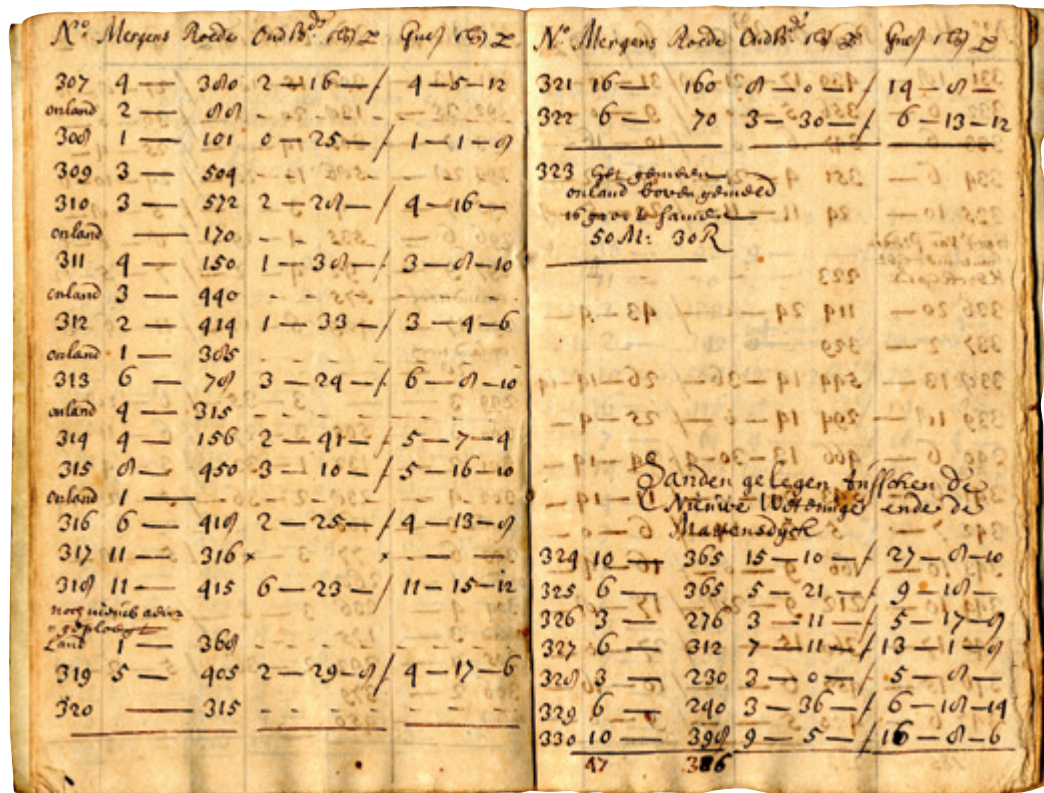 No Mergens Roede
307 4 — 380 2 — 16 — / 4 — 5 — 12
onland 2 — 88
308 1 — 101 0 — 25 — / 1 — 1 — 8
309 3 — 504
310 3 — 572 2 — 28 — / 4 — 16 —
onland — 170
311 4 — 150 1 — 38 — / 3 — 8 — 10
onland 3 — 440 - - - -
312 2 — 414 1 — 33 — / 3 — 4 — 6
onland 1 — 305 - - - -
313 6 — 78 3 — 24 — / 6 — 8 — 10
onland 4 — 315 - - - -
314 4 — 156 2 — 41 — / 5 — 7 — 4
315 8 — 450 3 — 10 — / 5 — 16 — 10
onland 1 —
316 6 — 418 2 — 25 — / 4 — 13 — 8
317 11 — 316 × × — —
318 11 — 415 6 — 23 — / 11 — 15 — 12
noch
Land 1 — 368 - - - -
319 5 — 405 2 — 29 — 8 / 4 — 17 — 6
320 — 315 - - - -
No Mergens Roede
321 16 — 160 8 — 0 — / 14 — 8 —
322 6 — 70 3 — 30 — / 6 — 13 — 12
323 Het gemeen
onland boven gemeld
is groot samen
50 M: 30 R
Landen gelegen tusschen de
Nieuwe Weteringe ende de
Mattensdyck
324 10 — 365 15 — 10 — / 27 — 8 — 10
325 6 — 365 5 — 21 — / 9 — 18 —
326 3 — 276 3 — 11 — / 5 — 17 — 8
327 6 — 312 7 — 11 — / 13 — 1 — 8
328 3 — 230 3 — 0 — / 5 — 8 —
329 6 — 240 3 — 36 — / 6 — 18 — 14
330 10 — 398 9 — 5 — / 16 — 8 — 6
47 386